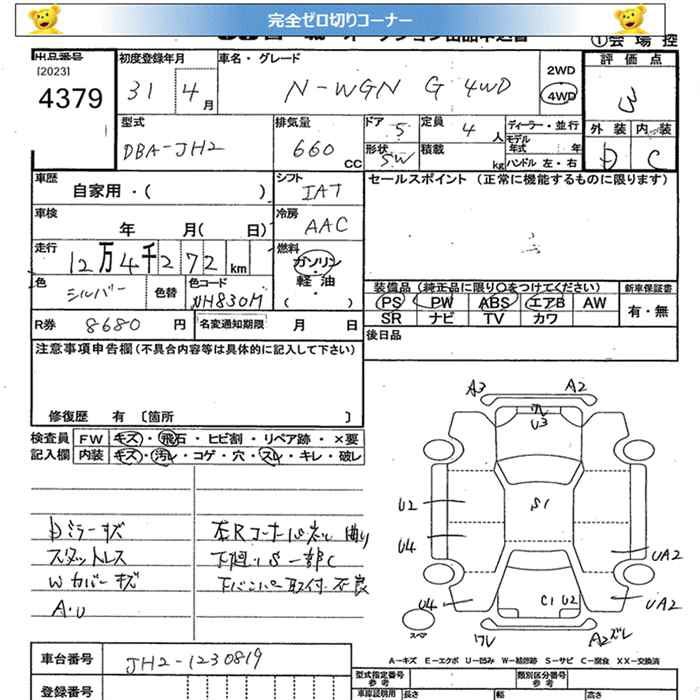 完全ゼロ切りコーナー
①会場控
出品番号
[2023]
4379
初度登録年月
31 4月
車名・グレード
N-WGN G 4WD
2WD
4WD
評価点
3
外装 内装
D C
型式
DBA-JH2
排気量
660 CC
ドア 5
形状 5W
定員 4 人
積載 kg
ディーラー・並行
モデル年式 年
ハンドル 左・右
車歴
自家用・( )
シフト
IAT
セールスポイント (正常に機能するものに限ります)
車検
年 月( 日)
冷房
AAC
走行
12万4千272km
燃料
ガソリン
・
軽油
( )
色
シルバー
色替
色コード
NH830M
装備品(純正品に限り○をつけてください)
PS PW ABS エアB AW
SR ナビ TV カワ
新車保証書
有・無
R券 8680 円
名変通知期限 月 日
後日品
注意事項申告欄(不具合内容等は具体的に記入して下さい)
修復歴 有 [箇所 ]
検査員 FW キズ・飛石・ヒビ割・リペア跡・×要
記入欄 内装 キズ・汚レ・コゲ・穴・スレ・キレ・破レ
Dミラーキズ
スタットレス
Wカバーキズ
A・U
右Rコーナーパネル曲り
下廻りS一部C
下バンパー取付不良
A3 A2
ワレ
U3
U2
S1
U4
UA2
U4
C1 U2
UA2
スペア
ワレ
A2ズレ
A-キズ E-エクボ U-凹み W-補修跡 S-サビ C-腐食 XX-交換済
車台番号
JH2-1230819
登録番号
型式指定番号
参考
類別区分番号
参考
車庫証明用
長さ
幅
高さ